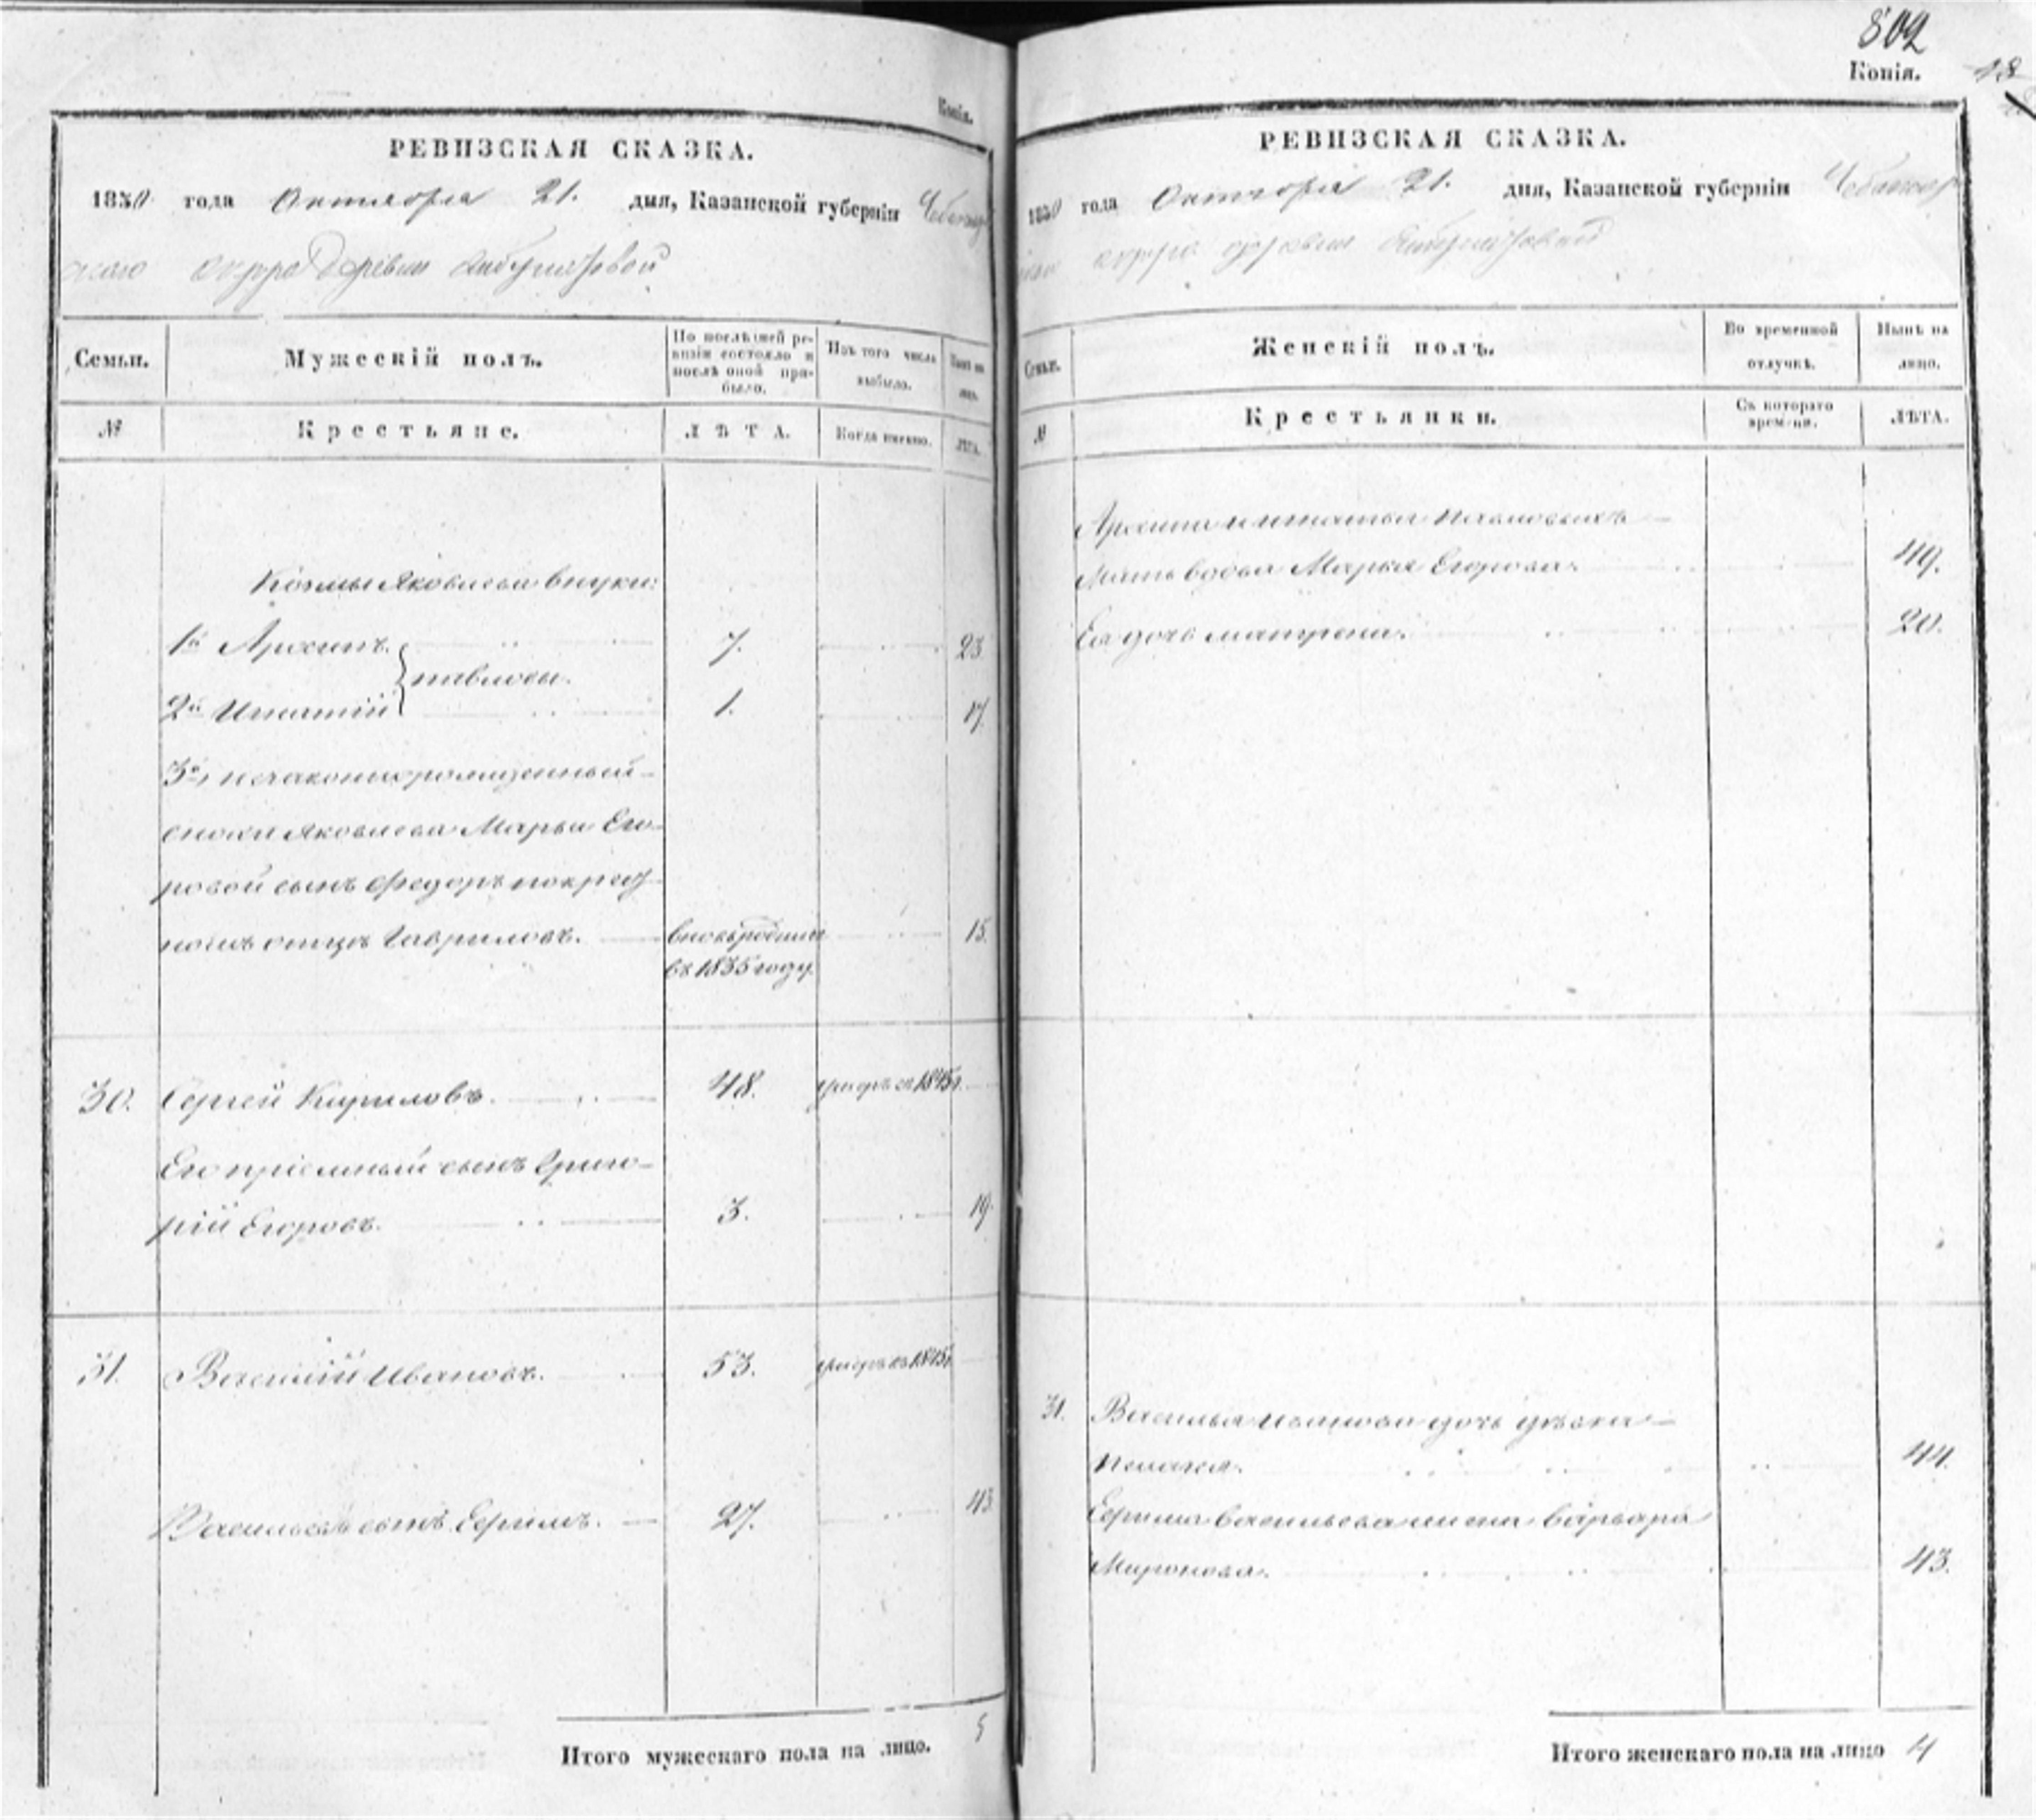 802
Копія.
Копія.
РЕВИЗСКАЯ СКАЗКА.
1850 года Октября 21. дня, Казанской губерніи Чебоксар
скаго округа деревни
Семьи.
Мужескій полъ.
По послѣдней ре-
визіи состояло и
послѣ оной при-
было.
Изъ того числа
выбыло.
Нынѣ на
лицо.
№
Крестьяне.
ЛѢТА.
Когда именно.
ЛѢТА.
Козмы Яковлева внуки:
1й Архипъ 7. 23
павловы.
2й Игнатій 1. 17.
3й, незаконнорожденный
снохи Яковлева Марьи Его-
ровой сынъ Федоръ по крест
номъ отцѣ Гавриловъ. вновьрожден 15.
въ 1835 году.
30. Сергей Кириловъ. 48. умеръ въ 1845г.
Его пріемный сынъ Григо-
рій Егоровъ. 3. 19.
31. Василій Ивановъ. 53. умеръ въ 1845г.
Васильевъ сынъ Ефримъ. 27. 43
Итого мужескаго пола на лицо. 5
РЕВИЗСКАЯ СКАЗКА.
1850 года Октября 21. дня, Казанской губерніи Чебоксар
скаго округа деревни
Семьи.
Женскій полъ.
Во временной
отлучкѣ.
Нынѣ на
лицо.
№
Крестьянки.
Съ котораго
времени.
ЛѢТА.
Архипа и Игнатья Павловыхъ
Мать вдова Марья Егорова. 49.
Ея дочь Матрена. 20.
31. Василья Иванова дочь дѣвка
Пелагея. 44.
Ефрима Васильева жена Варвара
Миронова. 43.
Итого женскаго пола на лицо 4